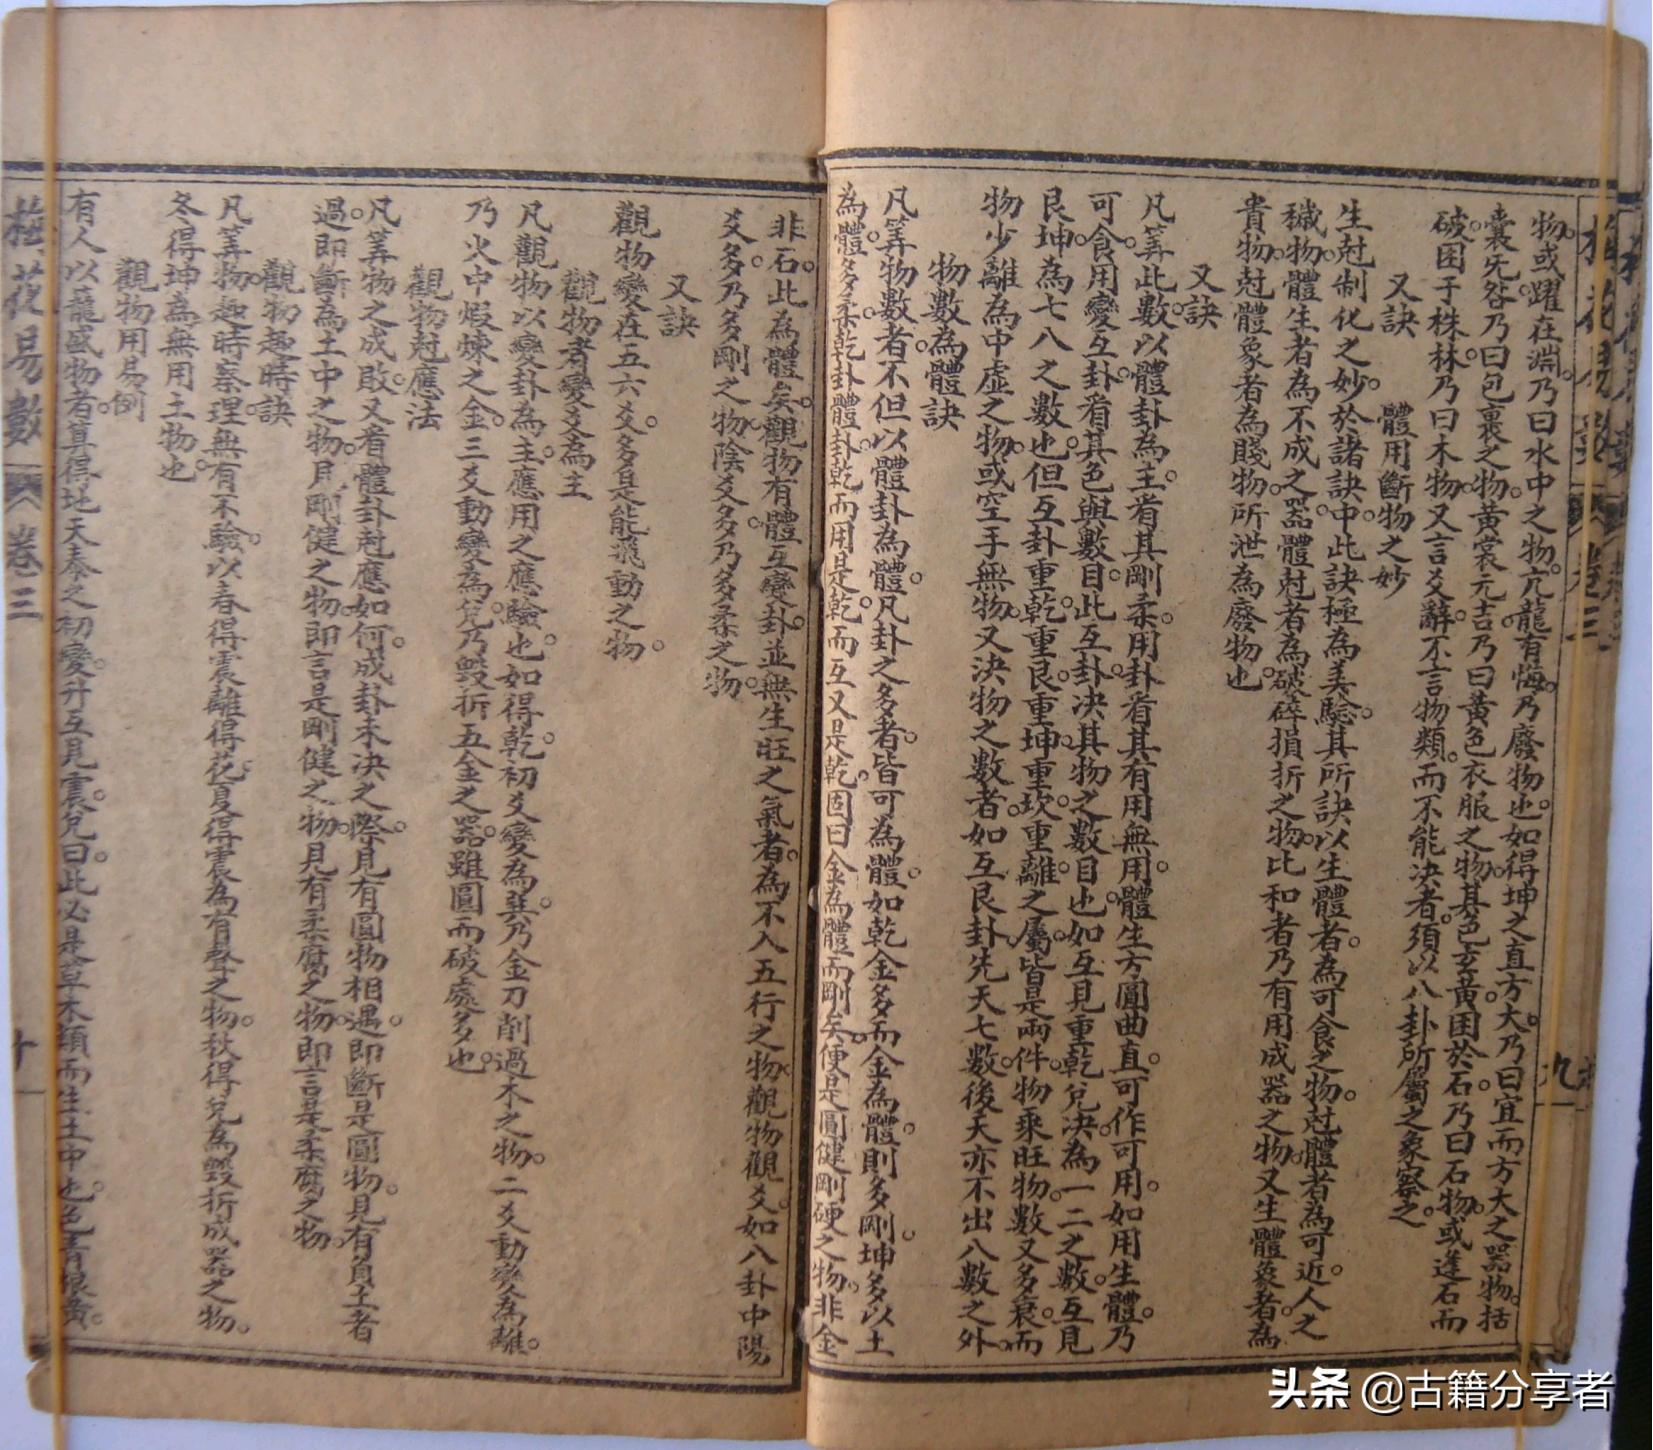 物。或躍在淵。乃曰水中之物。亢龍有悔。乃廢物也。如得坤之直方大。乃曰宜而方大之器物。括
囊无咎。乃曰包裹之物。黃裳元吉。乃曰黃色衣服之物。其色玄黃。困於石。乃曰石物。或逢石而
破。困于株林。乃曰木物。又言爻辭。不言物類。而不能決者。須以八卦所屬之象察之。
又訣
體用斷物之妙
生尅制化之妙。於諸訣中。此訣極為美驗。其所訣以生體者。為可食之物。尅體者為可近人之
穢物。體生者為不成之器。體尅者為破碎損折之物。比和者乃有用成器之物。又生體象者。為
貴物。尅體象者為賤物。所泄為廢物也。
又訣
凡筭此數。以體卦為主。看其剛柔。用卦看其有用無。用體生方圓曲直。可作可用。如用生體。乃
可食。用變互卦。看其色與數目。此互卦。決其物之數目也。如互見重乾兌。決為一二之數。互見
艮坤。為七八之數也。但互卦重乾。重艮。重坤。重坎。重離。之屬。皆是兩件物。乘旺物。數又多。衰。而
物少。離為中虛之物。或空手無物。又決物之數者。如互艮卦先天七數。後天亦不出八數之外。
物數為體訣
凡筭物數者。不但以體卦為體。凡卦之多者。皆可為體。如乾金多而金為體。則多剛。坤多以土
為體。多柔。乾卦體卦乾。而用是乾。而互又是乾。固曰金為體而剛矣。便是圓健剛硬之物。非金
非石。此為體矣。觀物有體互變卦。並無生旺之氣者。為不入五行之物。觀物觀爻。如八卦中陽
爻多。乃多剛之物。陰爻多。乃多柔之物。
又訣
觀物變在五六爻。多是能飛動之物。
觀物者變爻為主
凡觀物以變卦為主。應用之應驗也。如得乾初爻變為巽。乃金刀削過木之物。二爻動變為離。
乃火中煆煉之金。三爻動變為兌。乃毀折五金之器。雖圓而破處多也。
觀物尅應法
凡筭物之成敗。又看體卦尅應如何。成卦未決之際。見有圓物相遇。即斷是圓物。見有負土者
過。即斷為土中之物。見剛健之物。即言是剛健之物。見有柔腐之物。即言是柔腐之物。
觀物趣時訣
凡筭物。趣時察理。無有不驗。以春得震離得花。夏得震為有聲之物。秋得兌為毀折成器之物。
冬得坤為無用土物也。
觀物用易例
有人以籠盛物者。筭得地天泰之初變升互見震兌。曰。此必是草木類而生土中也。色青根黃。
梅花易數
卷三
九
梅花易數
卷三
十
头条 @古籍分享者